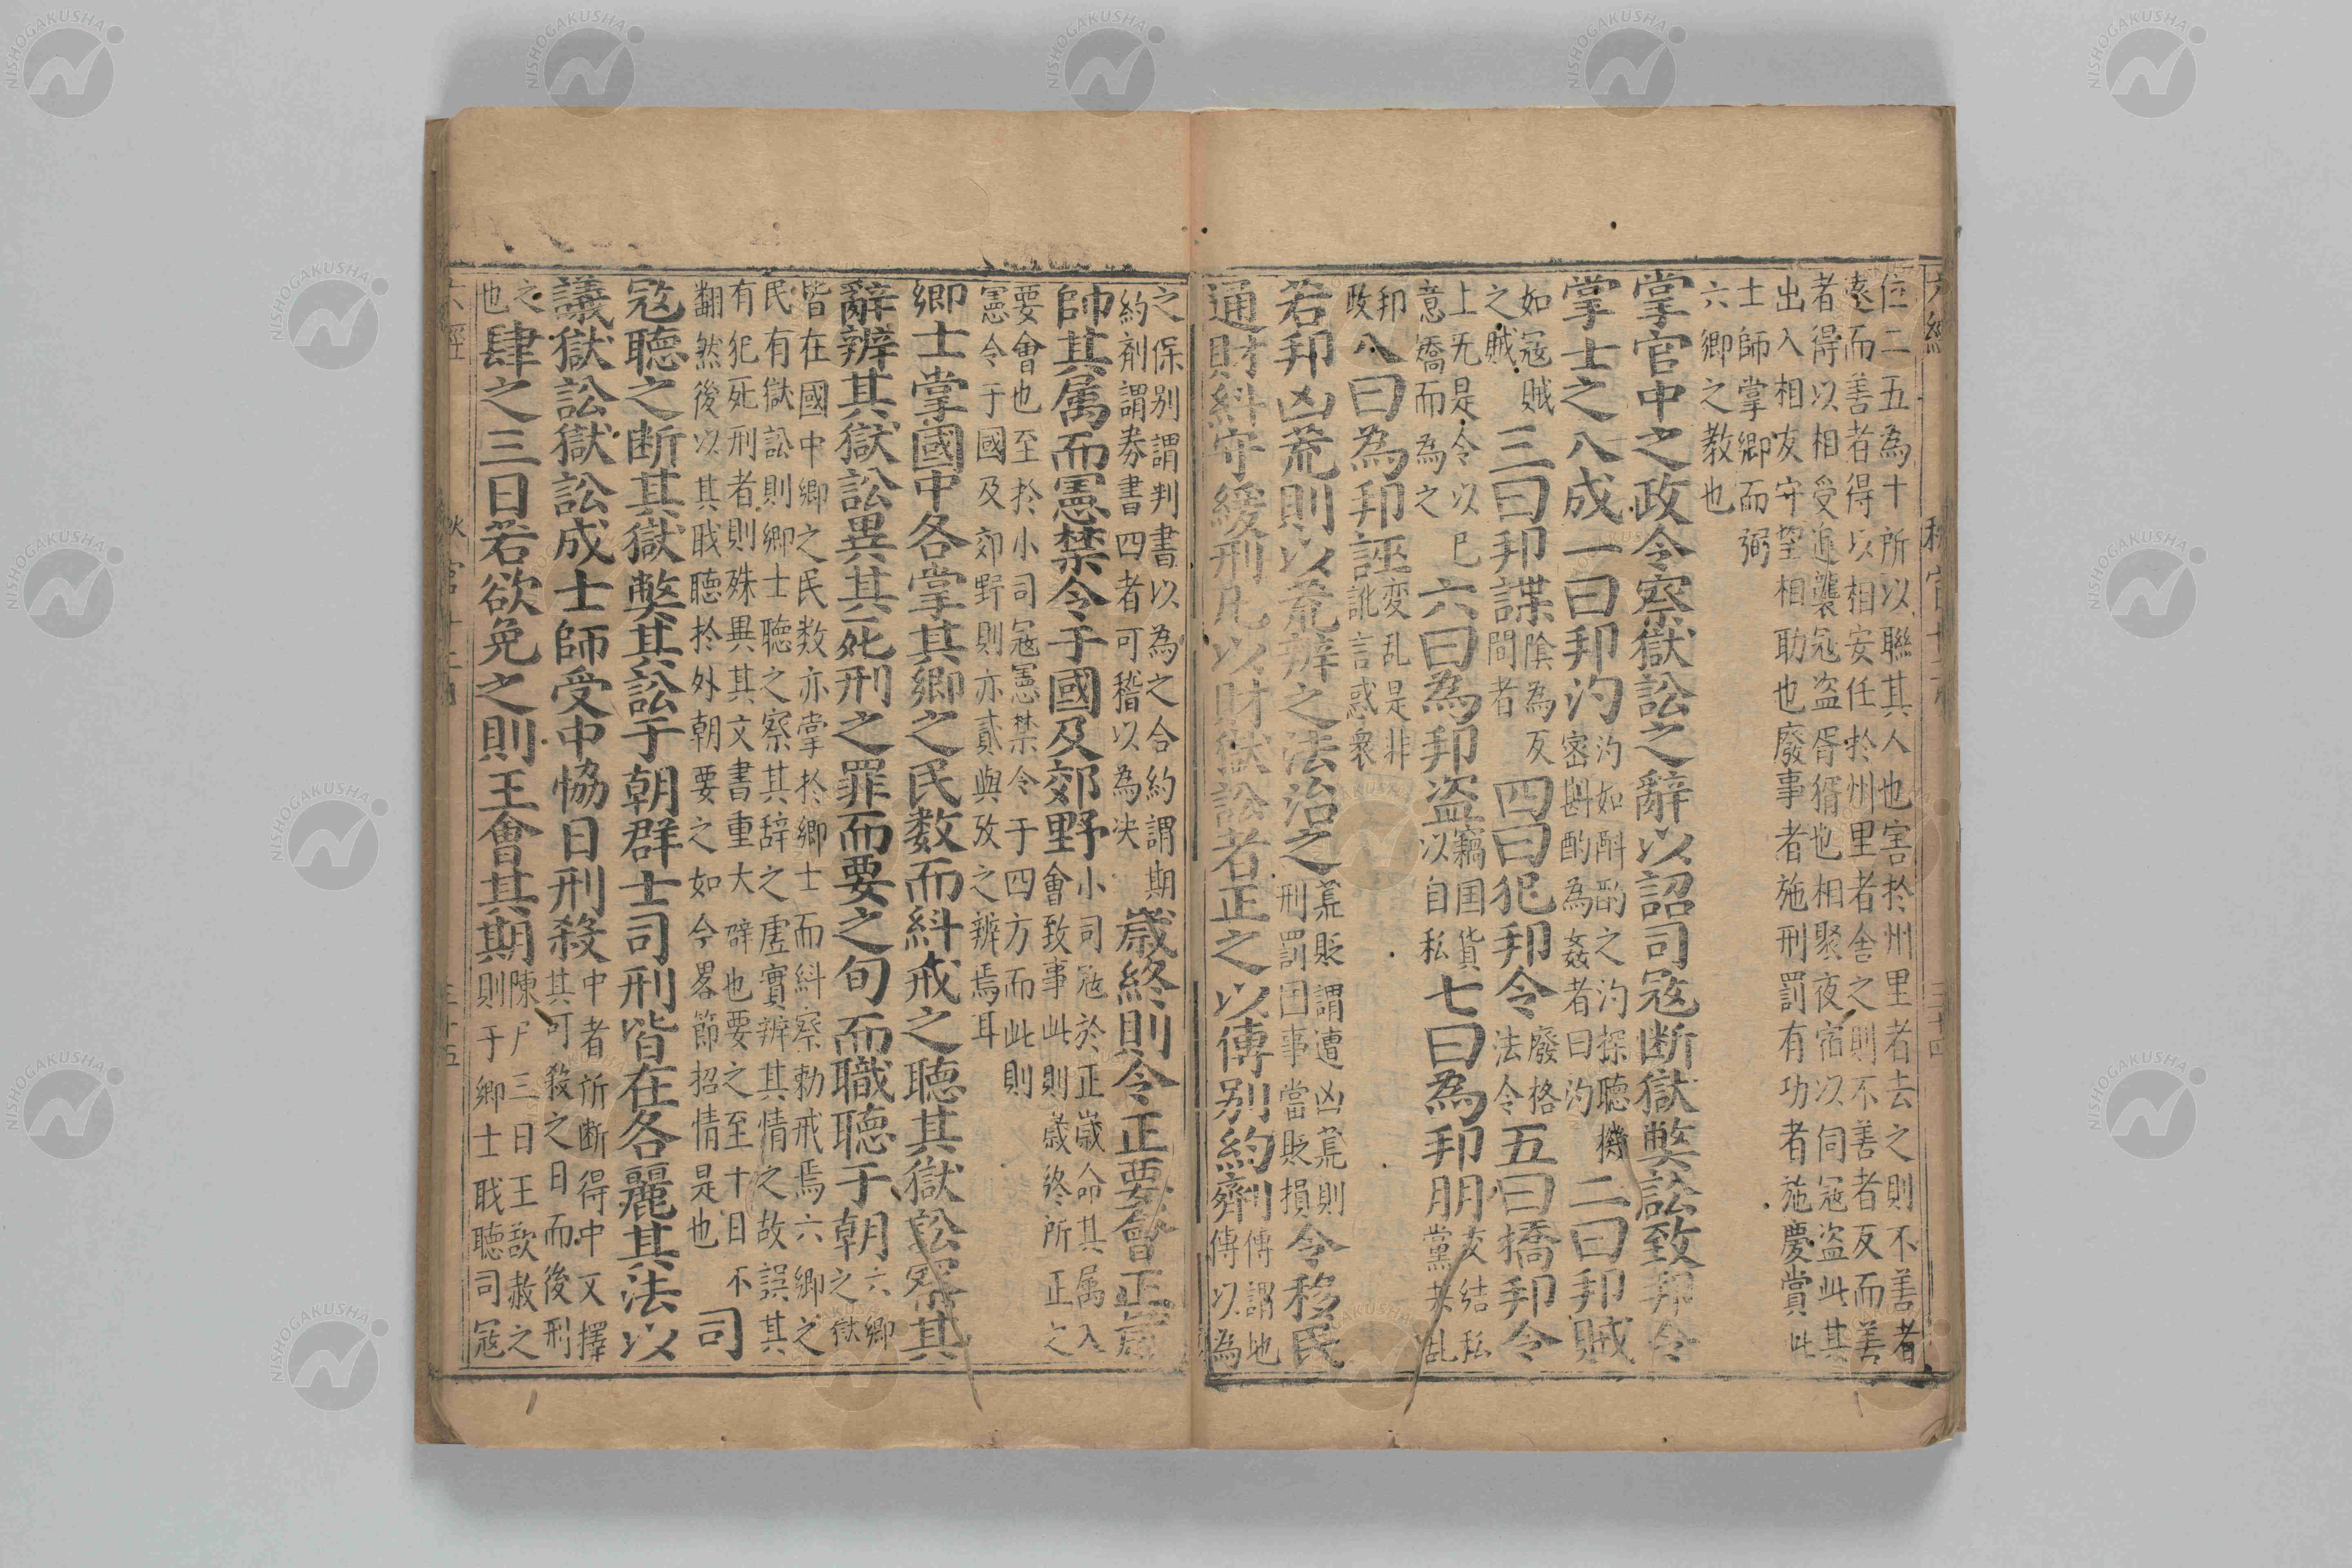 六經
位二五為十所以聯其人也害扵州里者去之則不善者
遠而善者得以相安任扵州里者舍之則不善者反而善
者得以相受追襲冦盗胥偦也相聚夜宿以伺冦盗此其
出入相友守望相助也廢事者施刑罰有功者施慶賞此
士師掌鄉而弼
六卿之教也
掌官中之政令察獄訟之辭以詔司冦断獄獘訟致邦令
掌士之八成一曰邦汋汋如斟酌之汋探聽機密斟酌為姦者曰汋二曰邦賊
如冦賊之賊三曰邦諜陰為反間者四曰犯邦令廢格法令五曰撟邦令
上旡是令以已意矯而為之六曰為邦盗竊国貨以自私七曰為邦朋交結私黨共乱
邦政八曰為邦誣変乱是非訛言惑衆
若邦凶荒則以荒辨之法治之荒貶謂遭凶荒則刑罰因事當貶損令移民
通財糾守緩刑凡以財獄訟者正之以傳别約劑傳謂地傅以為
之保别謂判書以為之合約謂期約剤謂劵書四者可稽以為决歳終則令正要會正歳
帥其属而憲禁令于國及郊野小司冦於正歲命其属入會致事此則歲終所正之
要會也至扵小司冦憲禁令于四方而此則
憲令于國及郊野則亦貳與攷之辨焉耳
鄉士掌國中各掌其鄉之民数而糾戒之聽其獄訟察其
辭辨其獄訟異其死刑之罪而要之旬而職聽于朝六鄉之獄
皆在國中鄉之民数亦掌扵鄉士而糾察勅戒焉六鄉之
民有獄訟則鄉士聽之察其辞之虗實辨其情之故誤其
有犯死刑者則殊異其文書重大辟也要之至十日不翻然後以其职聽扵外朝要之如今畧節招情是也司
冦聽之断其獄獘其訟于朝群士司刑皆在各麗其法以
議獄訟獄訟成士師受中恊日刑殺中者所断得中又擇其可殺之日而後刑
之也肆之三日若欲免之則王會其期陳尸三日王欲赦之則于鄉士职聽司冦
三十五
NISHOGAKUSHA